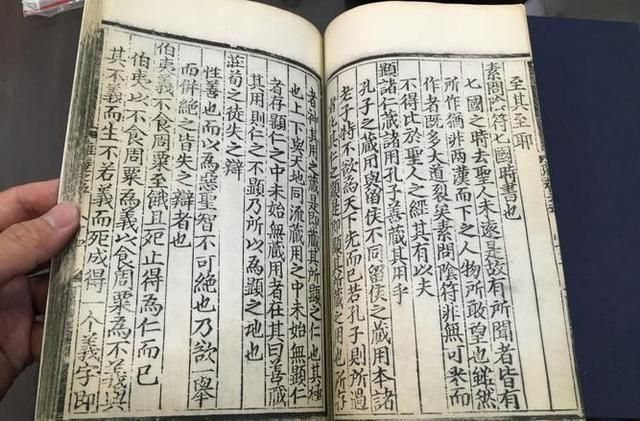 至其至耶
素問陰符七國時書也
七國之時去聖人未遠是故有所聞者皆有
所作猶非兩漢而下之人物所敢望也雖然
作者既多大道裂矣素問陰符非無可采而
不得比於聖人之經其有以夫
顯諸仁藏諸用孔子善藏其用乎
孔子之藏用與留侯不同留侯之藏用本諸
老子特不欲為天下先而已若孔子則所過
之顯是即顯其所藏之用也所存
者神其用之藏是即藏其所顯之仁也其極
也上下與天地同流藏用之中未始無顯仁
者存顯仁之中未始無藏用者在其曰善藏
其用則仁之不顯乃所以為顯之地也
莊荀之徒失之辯
性善也而以為惡聖智不可絶也乃欲一舉
而併絶之皆失之辯者也
伯夷義不食周粟至餓且死止得為仁而已
伯夷以不食周粟為義以食周粟為不義與
其不義而生不若義而死成得一个義字即